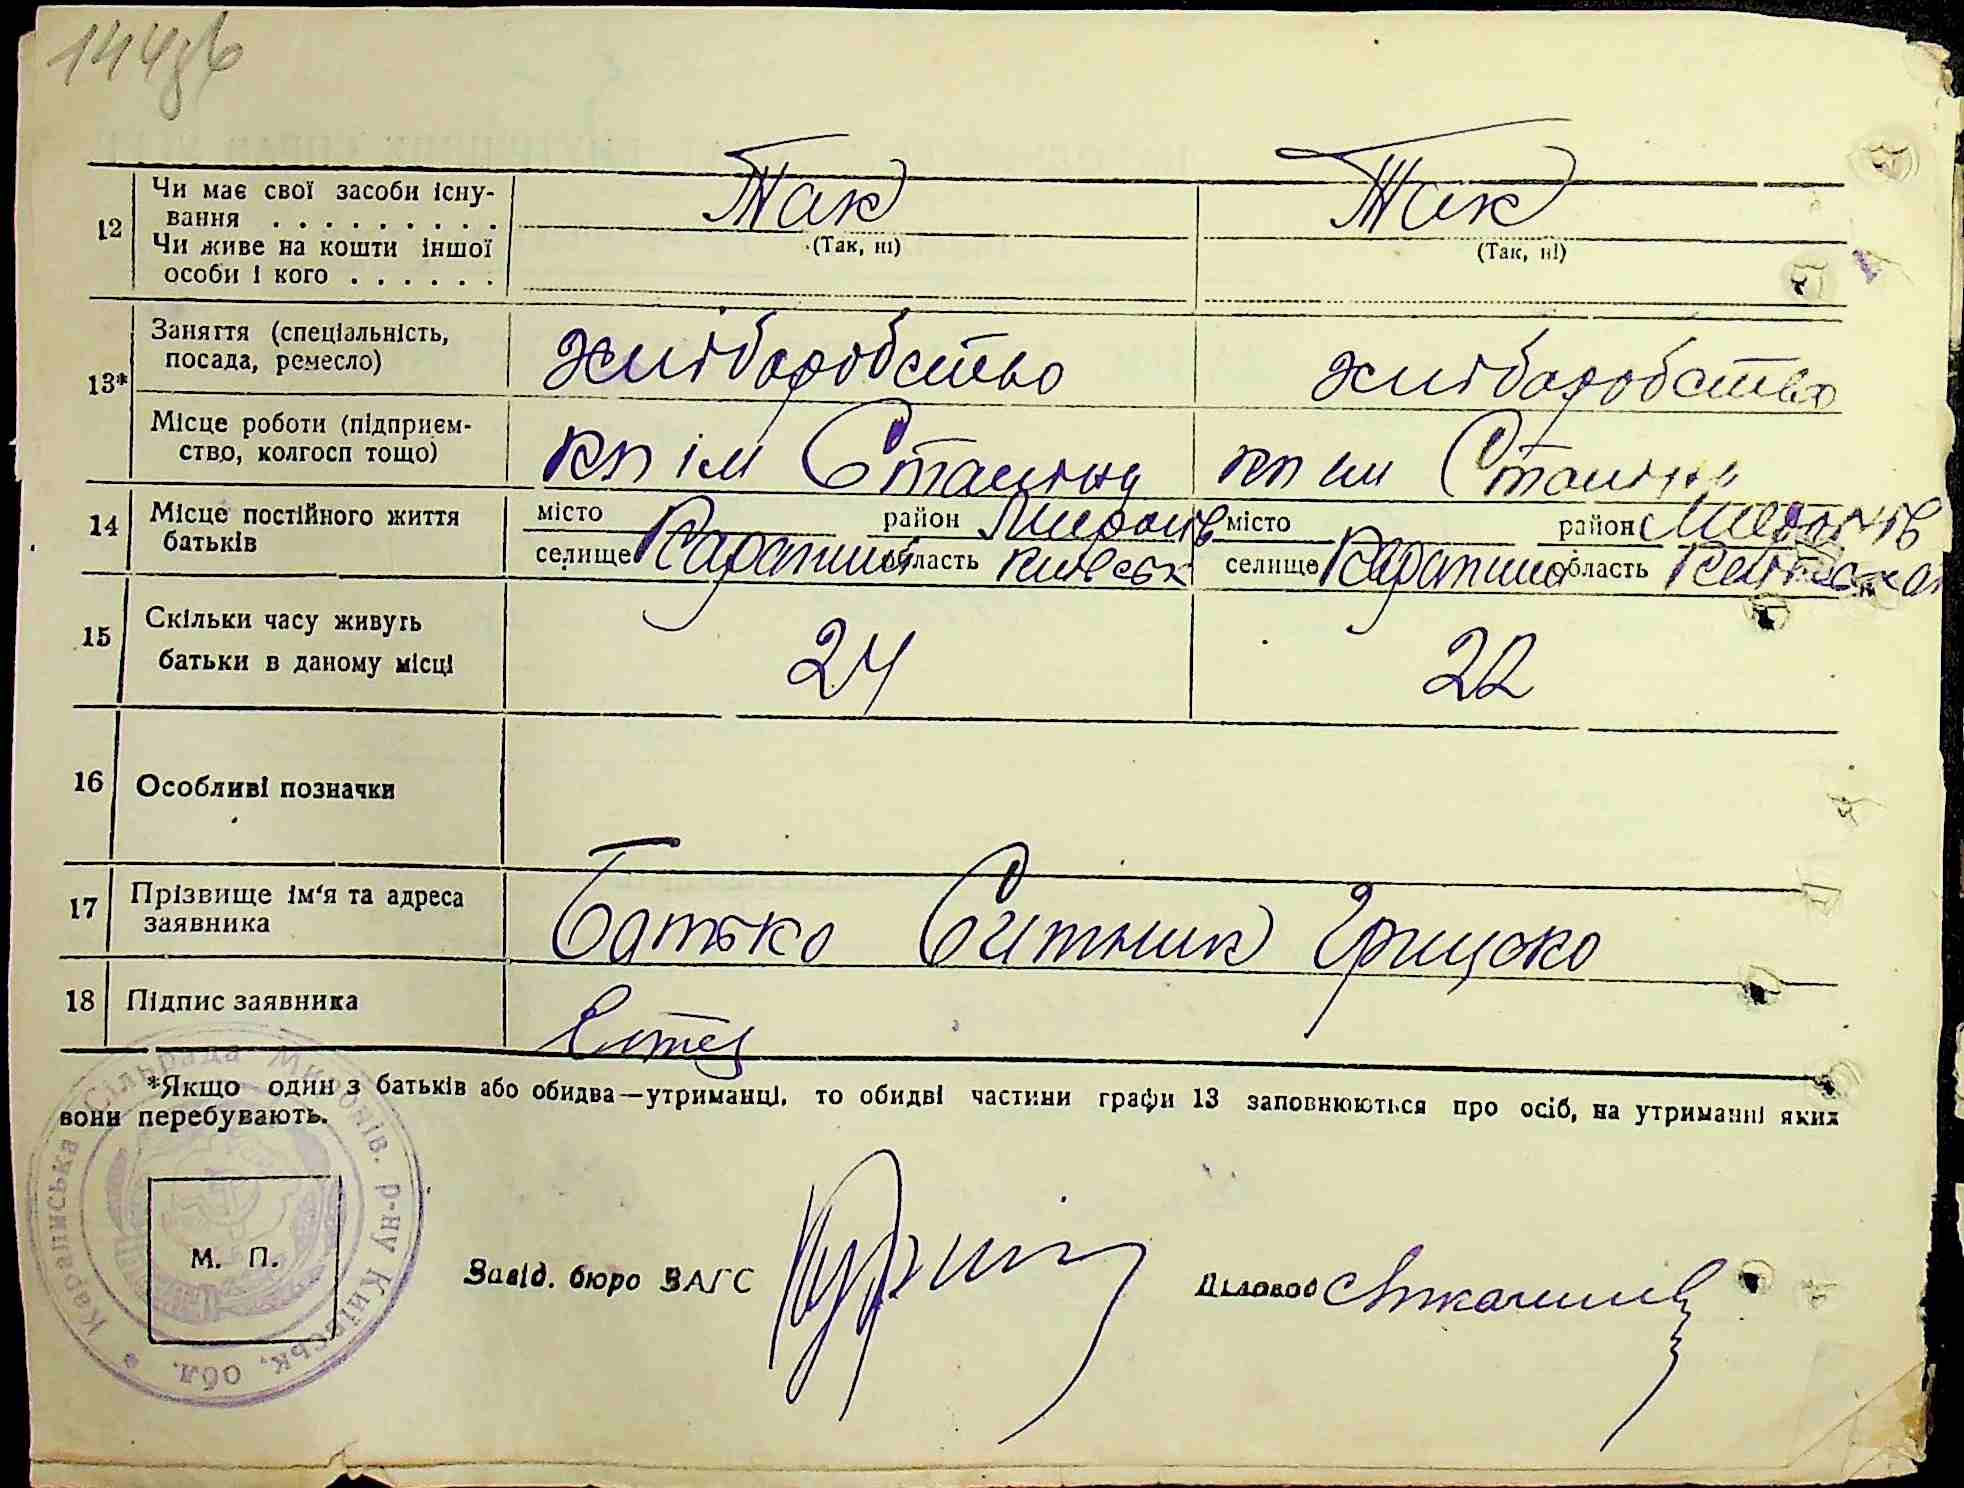 144зв
12 Чи має свої засоби існу-
вання . . . . . . . . . Так Так
(Так, ні) (Так, ні)
Чи живе на кошти іншої
особи і кого . . . . . .
13* Заняття (спеціальність,
посада, ремесло) хліборобство хліборобство
Місце роботи (підприєм-
ство, колгосп тощо) кп ім Сталіна кп ім Сталіна
14 Місце постійного життя
батьків
місто район Миронів місто район Миронів
селище Карапиші область Київськ селище Карапиші область Київська
15 Скільки часу живуть
батьки в даному місці 24 22
16 Особливі позначки
17 Прізвище ім'я та адреса
заявника Батько Ситник Грицько
18 Підпис заявника
*Якщо один з батьків або обидва—утриманці, то обидві частини графи 13 заповнюються про осіб, на утриманні яких
вони перебувають.
Караписька Сільрада Миронів. р-ну Київськ. обл.
М. П.
Завід. бюро ЗАГС Діловод